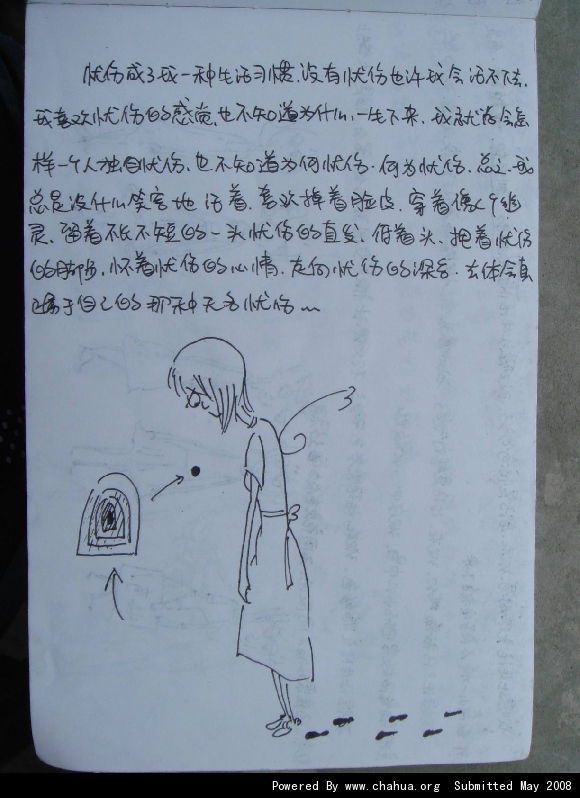 忧伤成了我一种生活习惯,没有忧伤也许我会活不下去,
我喜欢忧伤的感觉,也不知道为什么,一生下来,我就
样一个人独自忧伤,也不知道为何忧伤.何为忧伤,总之,我
总是没什么笑容地活着,喜欢掉着脸皮,穿着像个幽
灵,留着不长不短的一头忧伤的直发,低着头,抱着忧伤
的,怀着忧伤的心情,走向忧伤的深谷.去体会真
属于自己的那种无名忧伤...
Powered By www.chahua.org Submitted May 2008